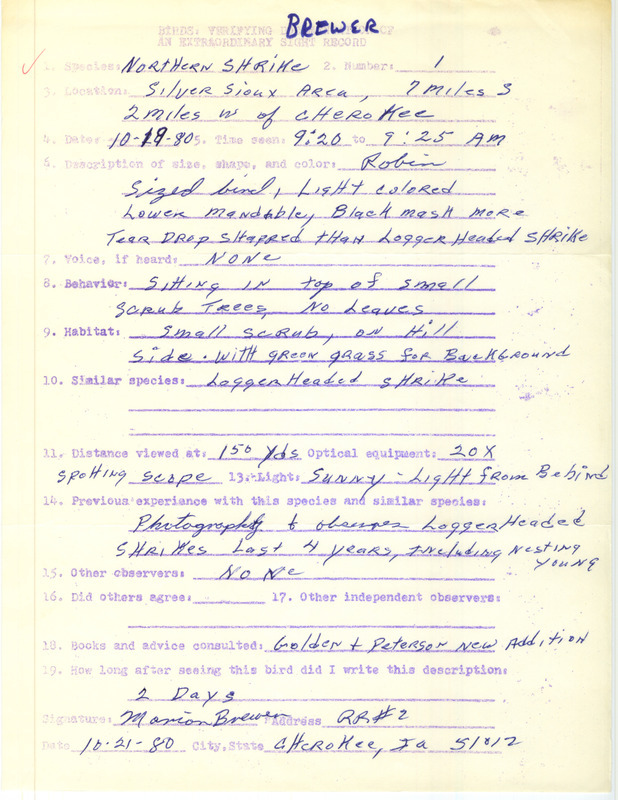 BREWER
BIRDS: VERIFYING OF
AN EXTRAORDINARY SIGHT RECORD
1. Species: Northern Shrike 2. Number: 1
3. Location: Silver Sioux Area, 7 miles S
2 miles W of Cherokee
4. Date: 10-19-80 5. Time seen: 9:20 to 9:25 AM
6. Description of size, shape, and color: Robin
Sized bird, Light colored
Lower mandable, Black mask more
Tear Drop Shapped than Logger Headed Shrike
7. Voice, if heard: None
8. Behavior: Sitting in top of small
scrub Trees, No Leaves
9. Habitat: Small scrub, on Hill
Side. with green grass for Background
10. Similar species: Logger Headed Shrike
11. Distance viewed at: 150 yds Optical equipment: 20X
spotting scope 13. Light: Sunny - Light from Behind
14. Previous experience with this species and similar species:
Photography & Logger Headed
Shrikes Last 4 years, Including Nesting
Young
15. Other observers: None
16. Did others agree: 17. Other independent observers:
18. Books and advice consulted: Golden + Peterson New Addition
19. How long after seeing this bird did I write this description:
2 Days
Signature: Marion Brewer Address RR#2
Date 10-21-80 City, State Cherokee, Ia 51012